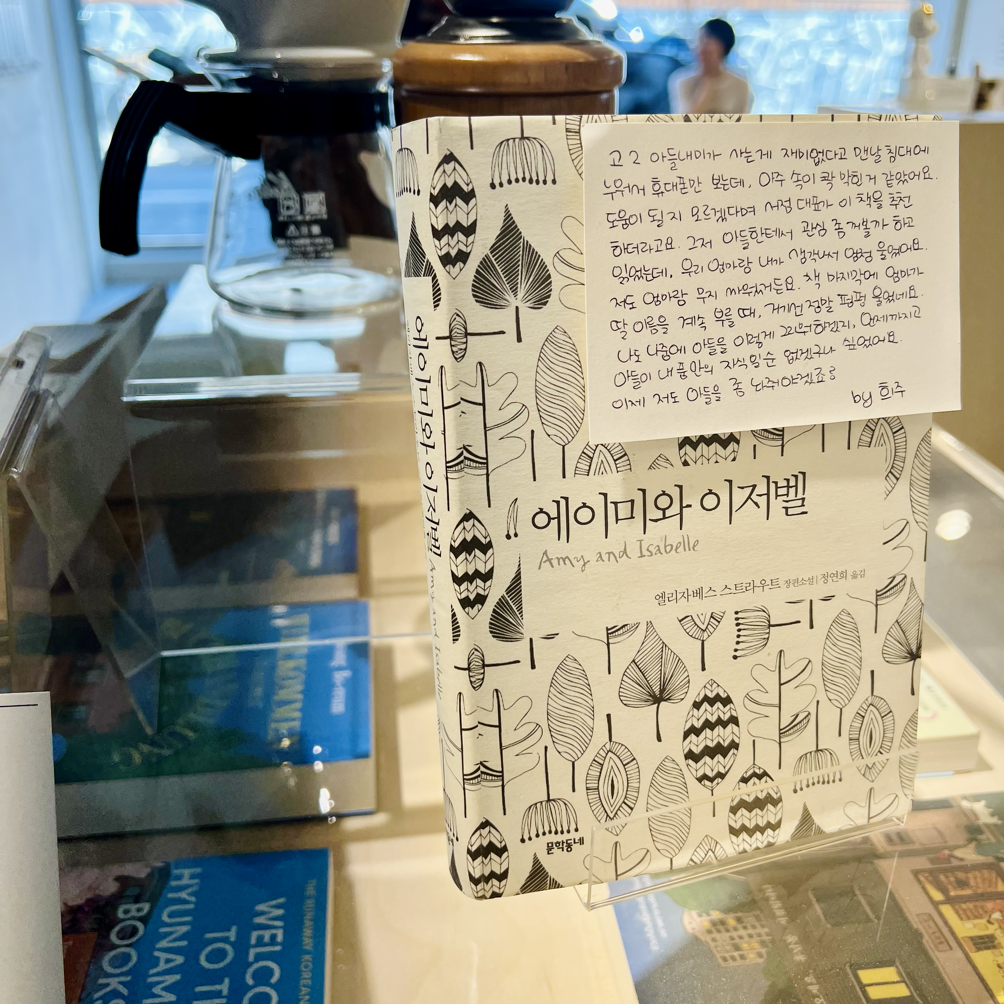 고2 아들내미가 사는게 재미없다고 맨날 침대에
누워서 휴대폰만 보는데, 아주 속이 콱 막힌거 같았어요.
도움이 될지 모르겠다며 서점 대표가 이 책을 추천
하더라고요. 그저 아들한테서 관심 좀 꺼볼까 하고
읽었는데, 우리 엄마랑 내가 생각나서 엄청 울었어요.
저도 엄마랑 무지 싸웠거든요. 책 마지막에 엄마가
딸 이름을 계속 부를 때, 거기선 정말 펑펑 울었네요.
나도 나중에 아들을 이렇게 그리워하겠지, 언제까지고
아들이 내 품 안의 자식일순 없겠구나 싶었어요.
이제 저도 아들을 좀 놔줘야겠죠?
by 희주
에이미와 이저벨
Amy and Isabelle
엘리자베스 스트라우트 장편소설 | 정연희 옮김
문학동네
에이미와 이저벨 Amy and Isabelle
WELCO
TO TH
HYUNAM
BOOKS
THE RUNAWAY KOREAN